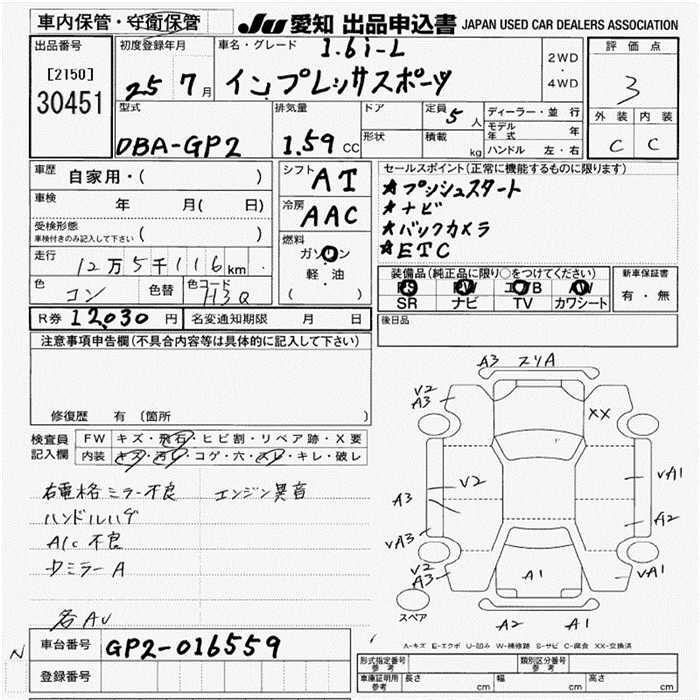 車内保管・守衛保管
JU 愛知 出品申込書 JAPAN USED CAR DEALERS ASSOCIATION
出品番号
[2150]
30451
初度登録年月
25 7月
車名・グレード
1.6i-L
インプレッサスポーツ
2WD
・
4WD
評価点
3
外装 内装
C C
型式
DBA-GP2
排気量
1.59 CC
ドア
形状
定員 5 人
積載 kg
ディーラー・並行
モデル年式 年
ハンドル 左・右
車歴 自家用・( )
車検 年 月( 日)
受検形態
車検付きのみ記入して下さい ( )
走行 12万5千116km
色 コン 色替 色コード H3Q
シフト AT
冷房 AAC
燃料
ガソリン
・
軽・油
( )
セールスポイント(正常に機能するものに限ります)
★プッシュスタート
★ナビ
★バックカメラ
★ETC
装備品(純正品に限り○をつけてください)
PS PW エアB AW
SR ナビ TV カワシート
新車保証書
有・無
R券 12,030 円 名変通知期限 月 日
後日品
注意事項申告欄(不具合内容等は具体的に記入して下さい)
修復歴 有 〔箇所 〕
検査員記入欄
FW キズ・飛石・ヒビ割・リペア跡・X要
内装 キズ・汚れ・コゲ・穴・スレ・キレ・破レ
右電格ミラー不良 エンジン異音
ハンドルハゲ
A/C 不良
中ミラーA
各AU
A3 スリA
V2
A3
XX
V2
A3
VA1
A2
VA3
V2
A3
A1
VA1
スペア
A2 A1
A-キズ E-エクボ U-凹み W-補修跡 S-サビ C-腐食 XX-交換済
N
車台番号 GP2-016559
登録番号
形式指定番号 参考
類別区分番号 参考
車庫証明用 参考 長さ cm 幅 cm 高さ cm